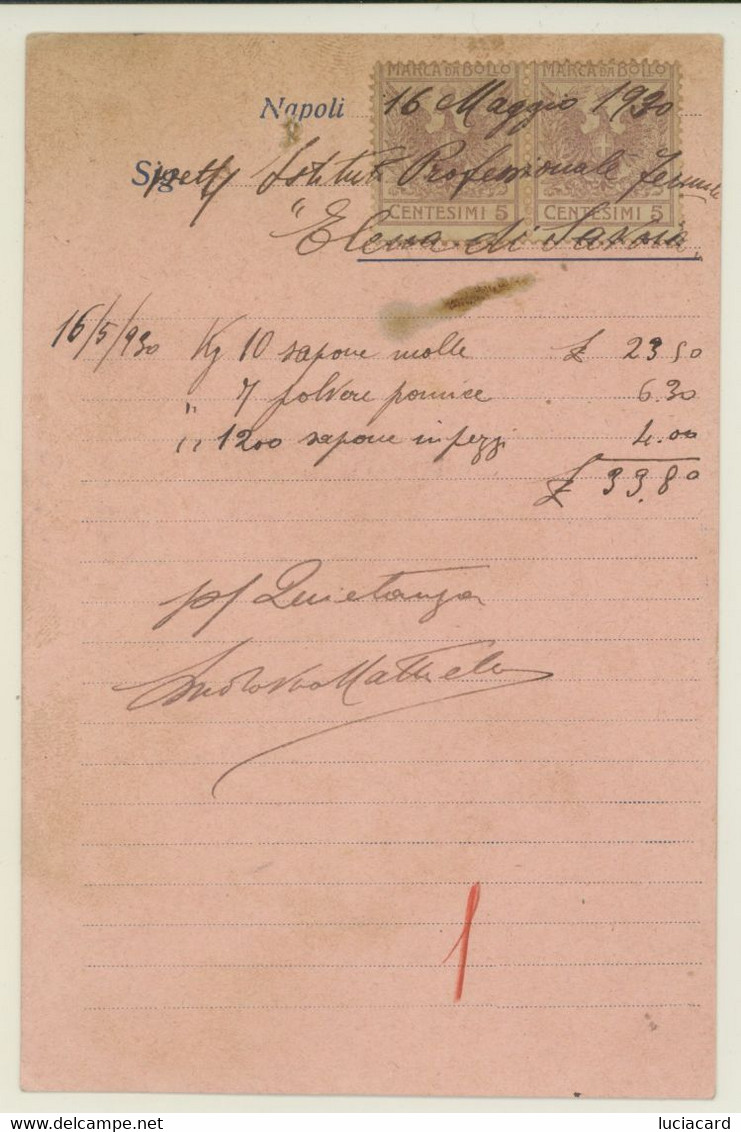 MARCA DA BOLLO MARCA DA BOLLO
Napoli 16 Maggio 1930
Sig Istituto Professionale
CENTESIMI 5 CENTESIMI 5
"Elena di Savoia"
16/5/930 Kg 10 sapone molle £ 23.50
" 7 polvere pomice 6.30
" 1200 sapone in pezzi 4.00
£ 33.80
p/ Quietanza
delcampe.net luciacard